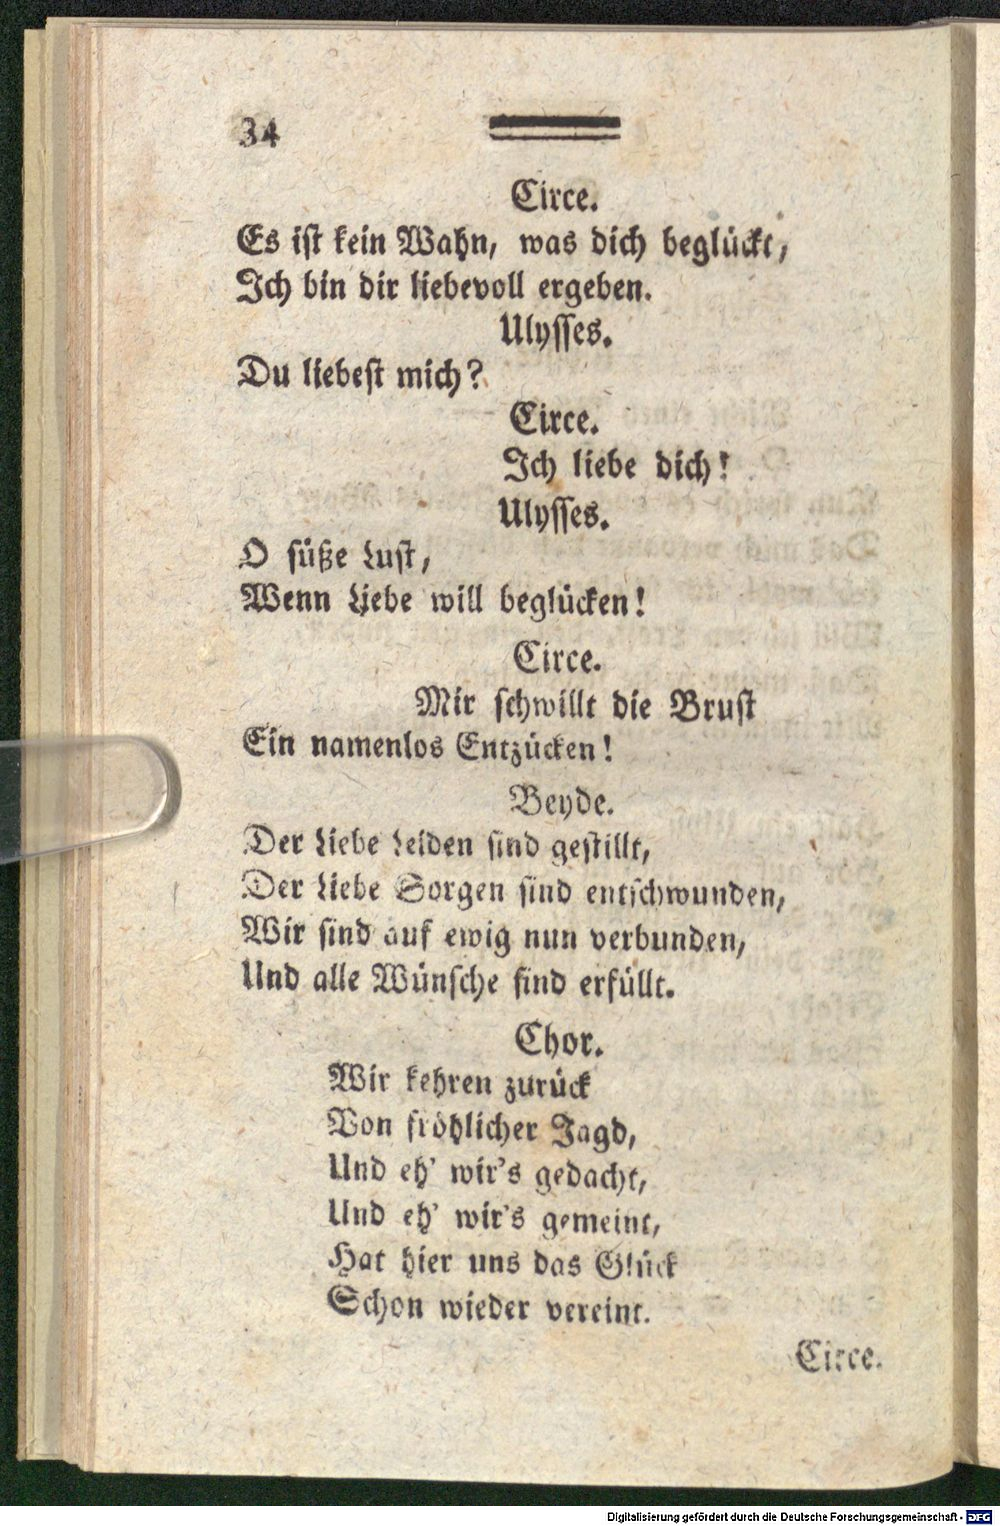 34
Circe.
Es ist kein Wahn, was dich beglückt,
Ich bin dir liebevoll ergeben.
Ulysses.
Du liebest mich?
Circe.
Ich liebe dich!
Ulysses.
O süße Lust,
Wenn Liebe will beglücken!
Circe.
Mir schwillt die Brust
Ein namenlos Entzücken!
Beyde.
Der Liebe Leiden sind gestillt,
Der Liebe Sorgen sind entschwunden,
Wir sind auf ewig nun verbunden,
Und alle Wünsche sind erfüllt.
Chor.
Wir kehren zurück
Von fröhlicher Jagd,
Und eh' wir's gedacht,
Und eh' wir's gemeint,
Hat hier uns das Glück
Schon wieder vereint.
Circe.
Digitalisierung gefördert durch die Deutsche Forschungsgemeinschaft - DFG